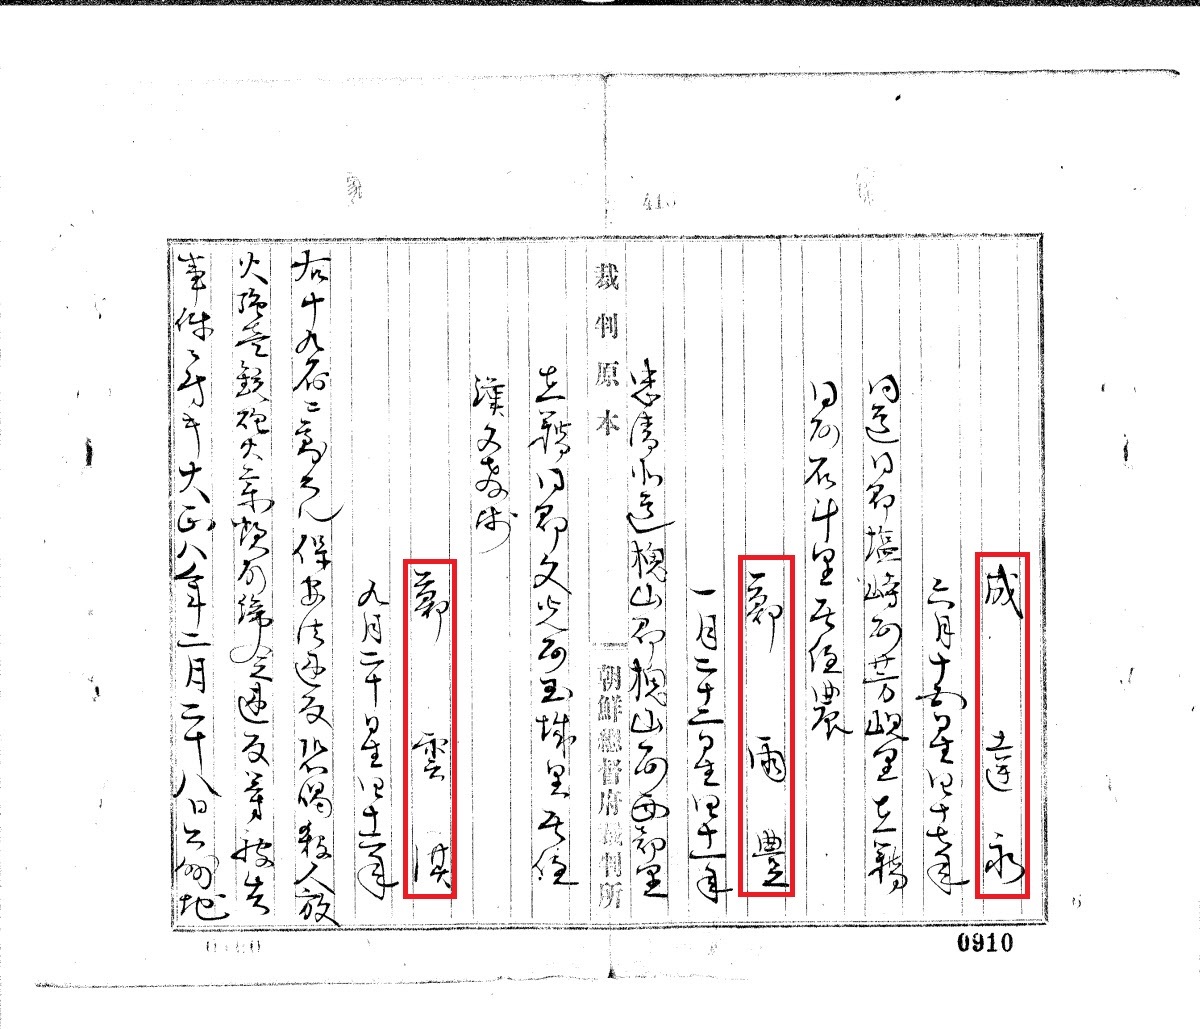 成 達 永
六月十五日生四十七年
同道同郡塩崎面芳峴里在籍
同面石斗里居住農
鄭 雨 豊
一月二十二日生四十一年
忠清北道槐山郡槐山面西部里
在籍同郡文光面玉城里居住
漢文教師
裁判原本
朝鮮總督府裁判所
鄭 雲 淇
九月二十日生四十六年
右十九名ニ對スル保安法違反恐喝殺人放
火強盗銃砲火薬類取締令違反等被告
事件ニ付キ大正八年二月二十八日公州地
0910